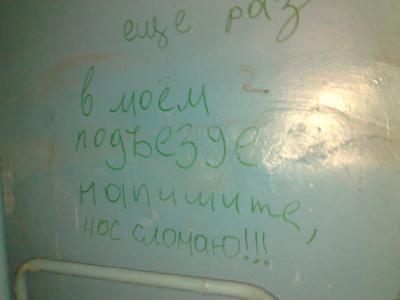 еще раз
в моём
подъезде
напишите,
нос сломаю!!!